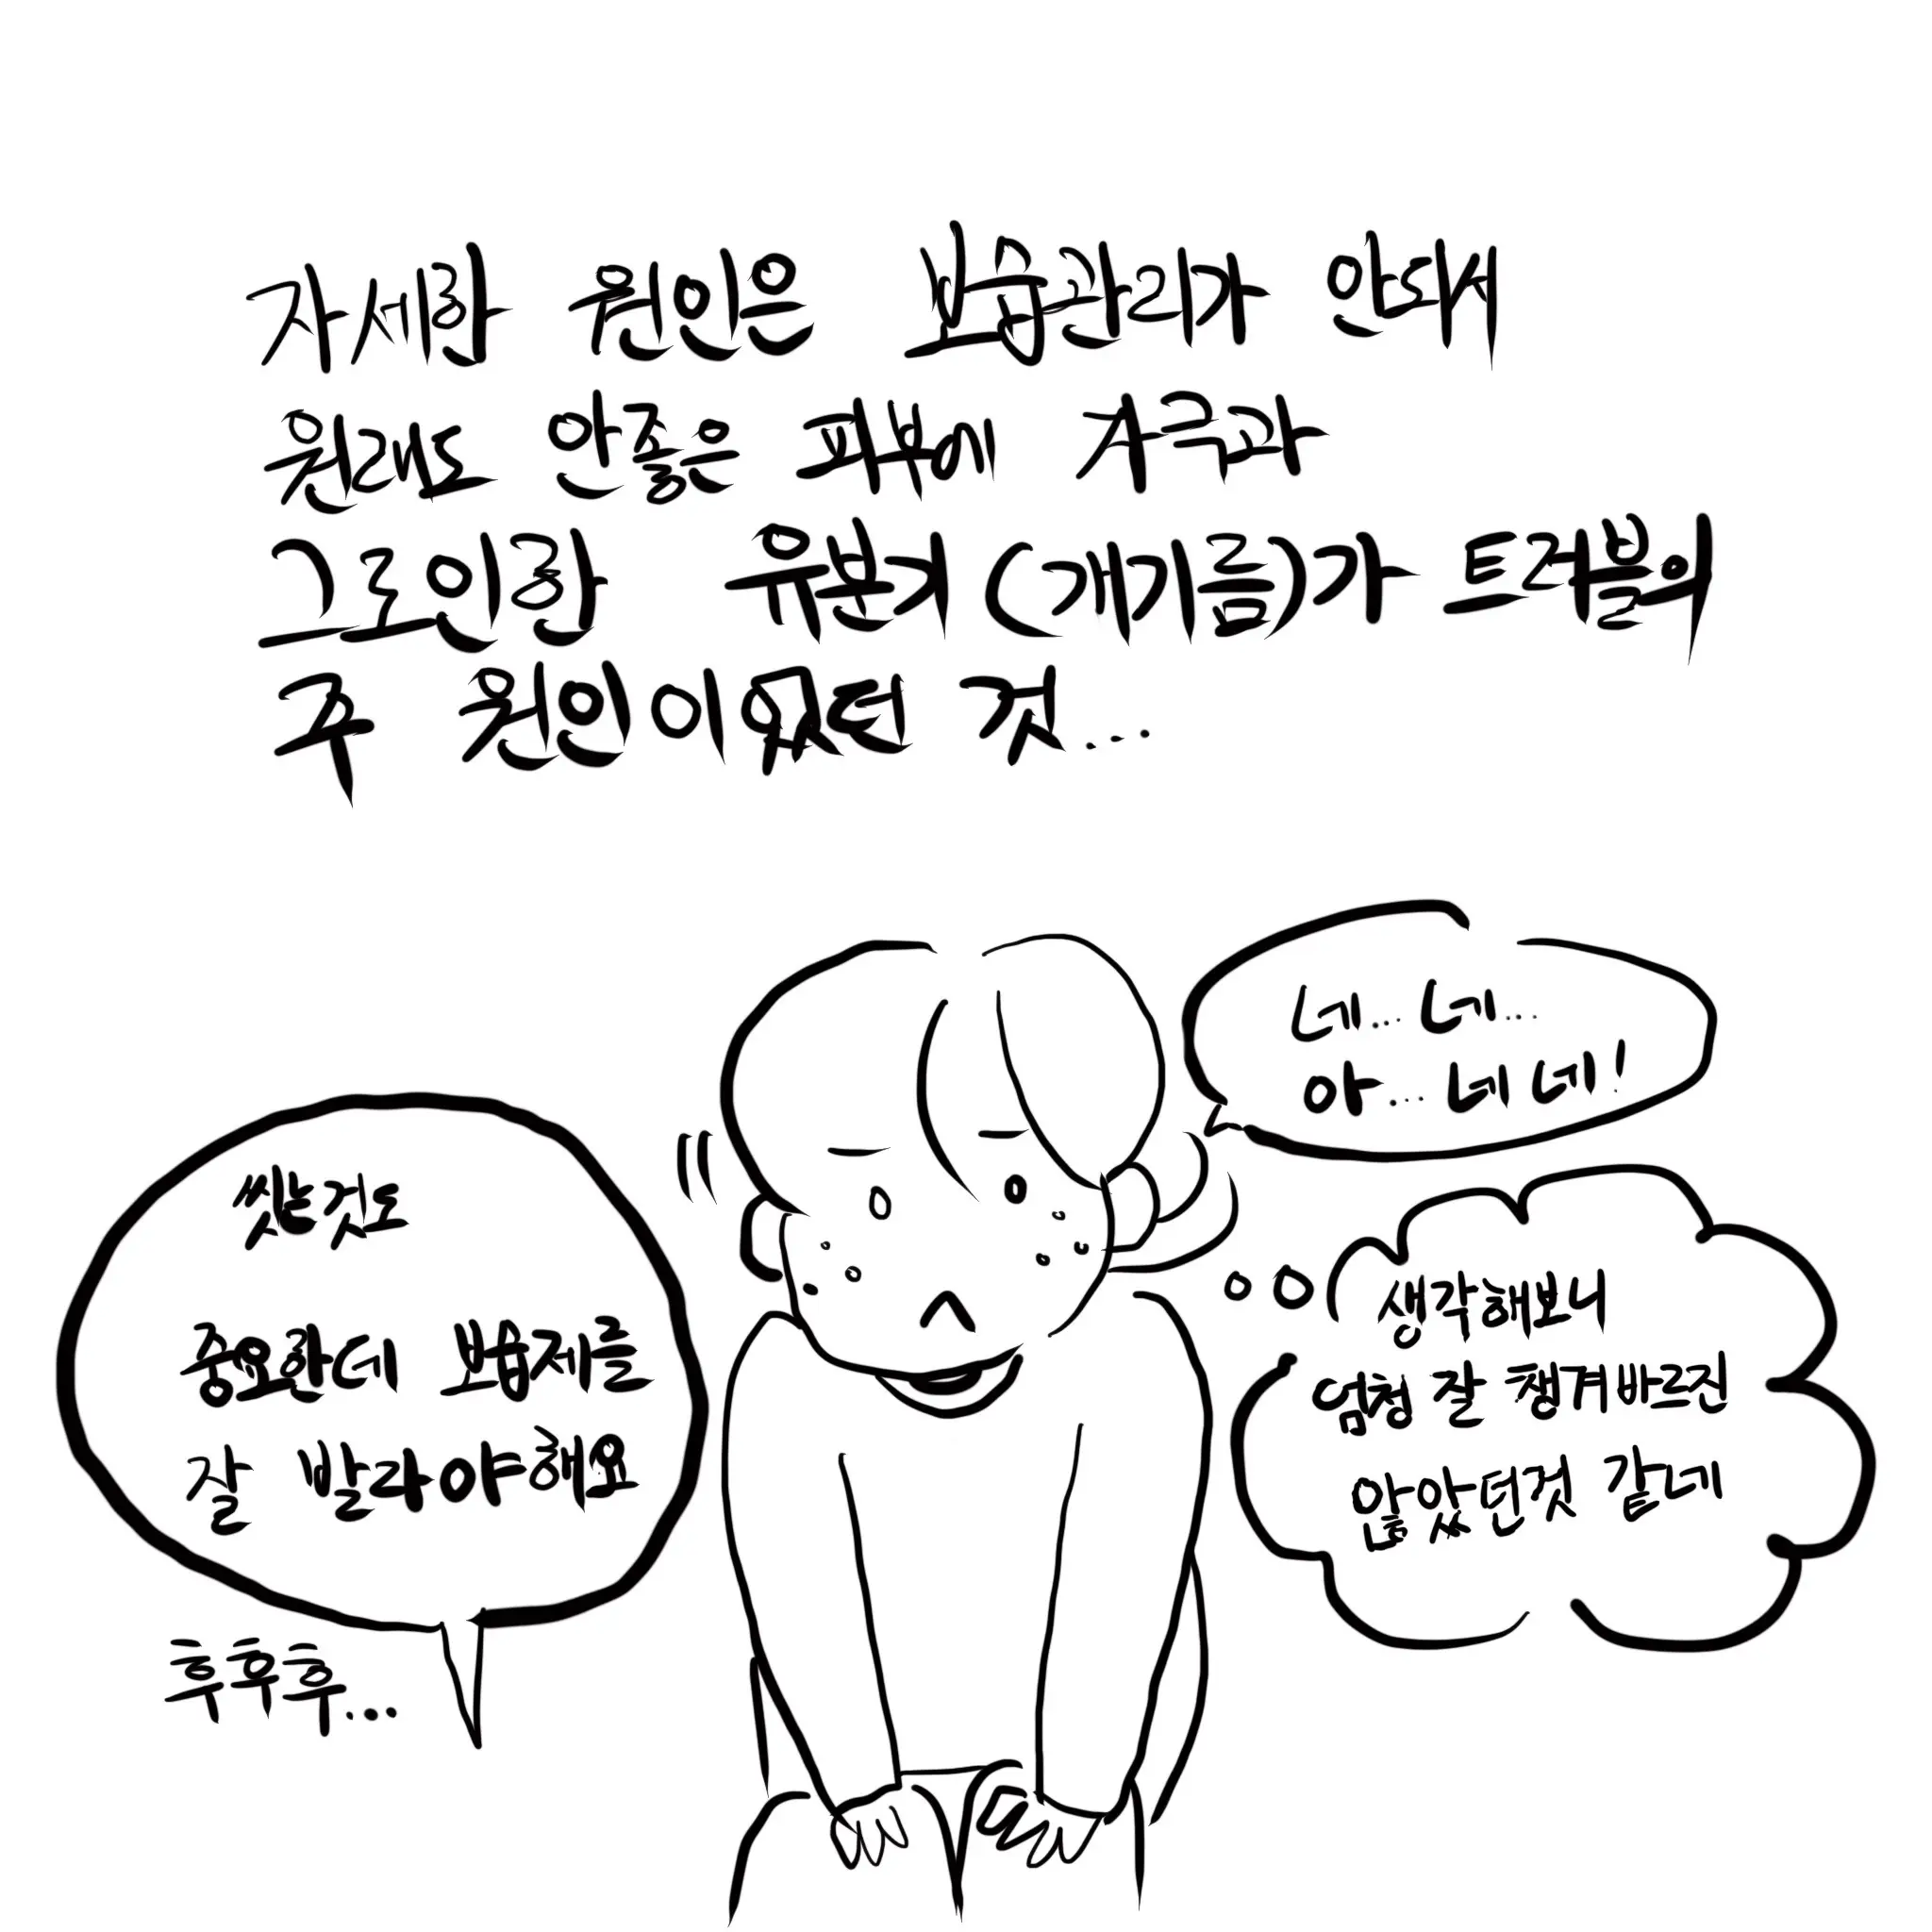 자세한 원인은 보습관리가 안돼서
원래도 안좋은 피부에 자극과
그로인한 유분기(개기름)가 트러블의
주 원인이였던 것...
네... 네...
아... 네 네!
씻는것도
중요한데 보습제를
잘 발라야해요
생각해보니
엄청 잘 챙겨바르진
않았던것 같네
후후후...